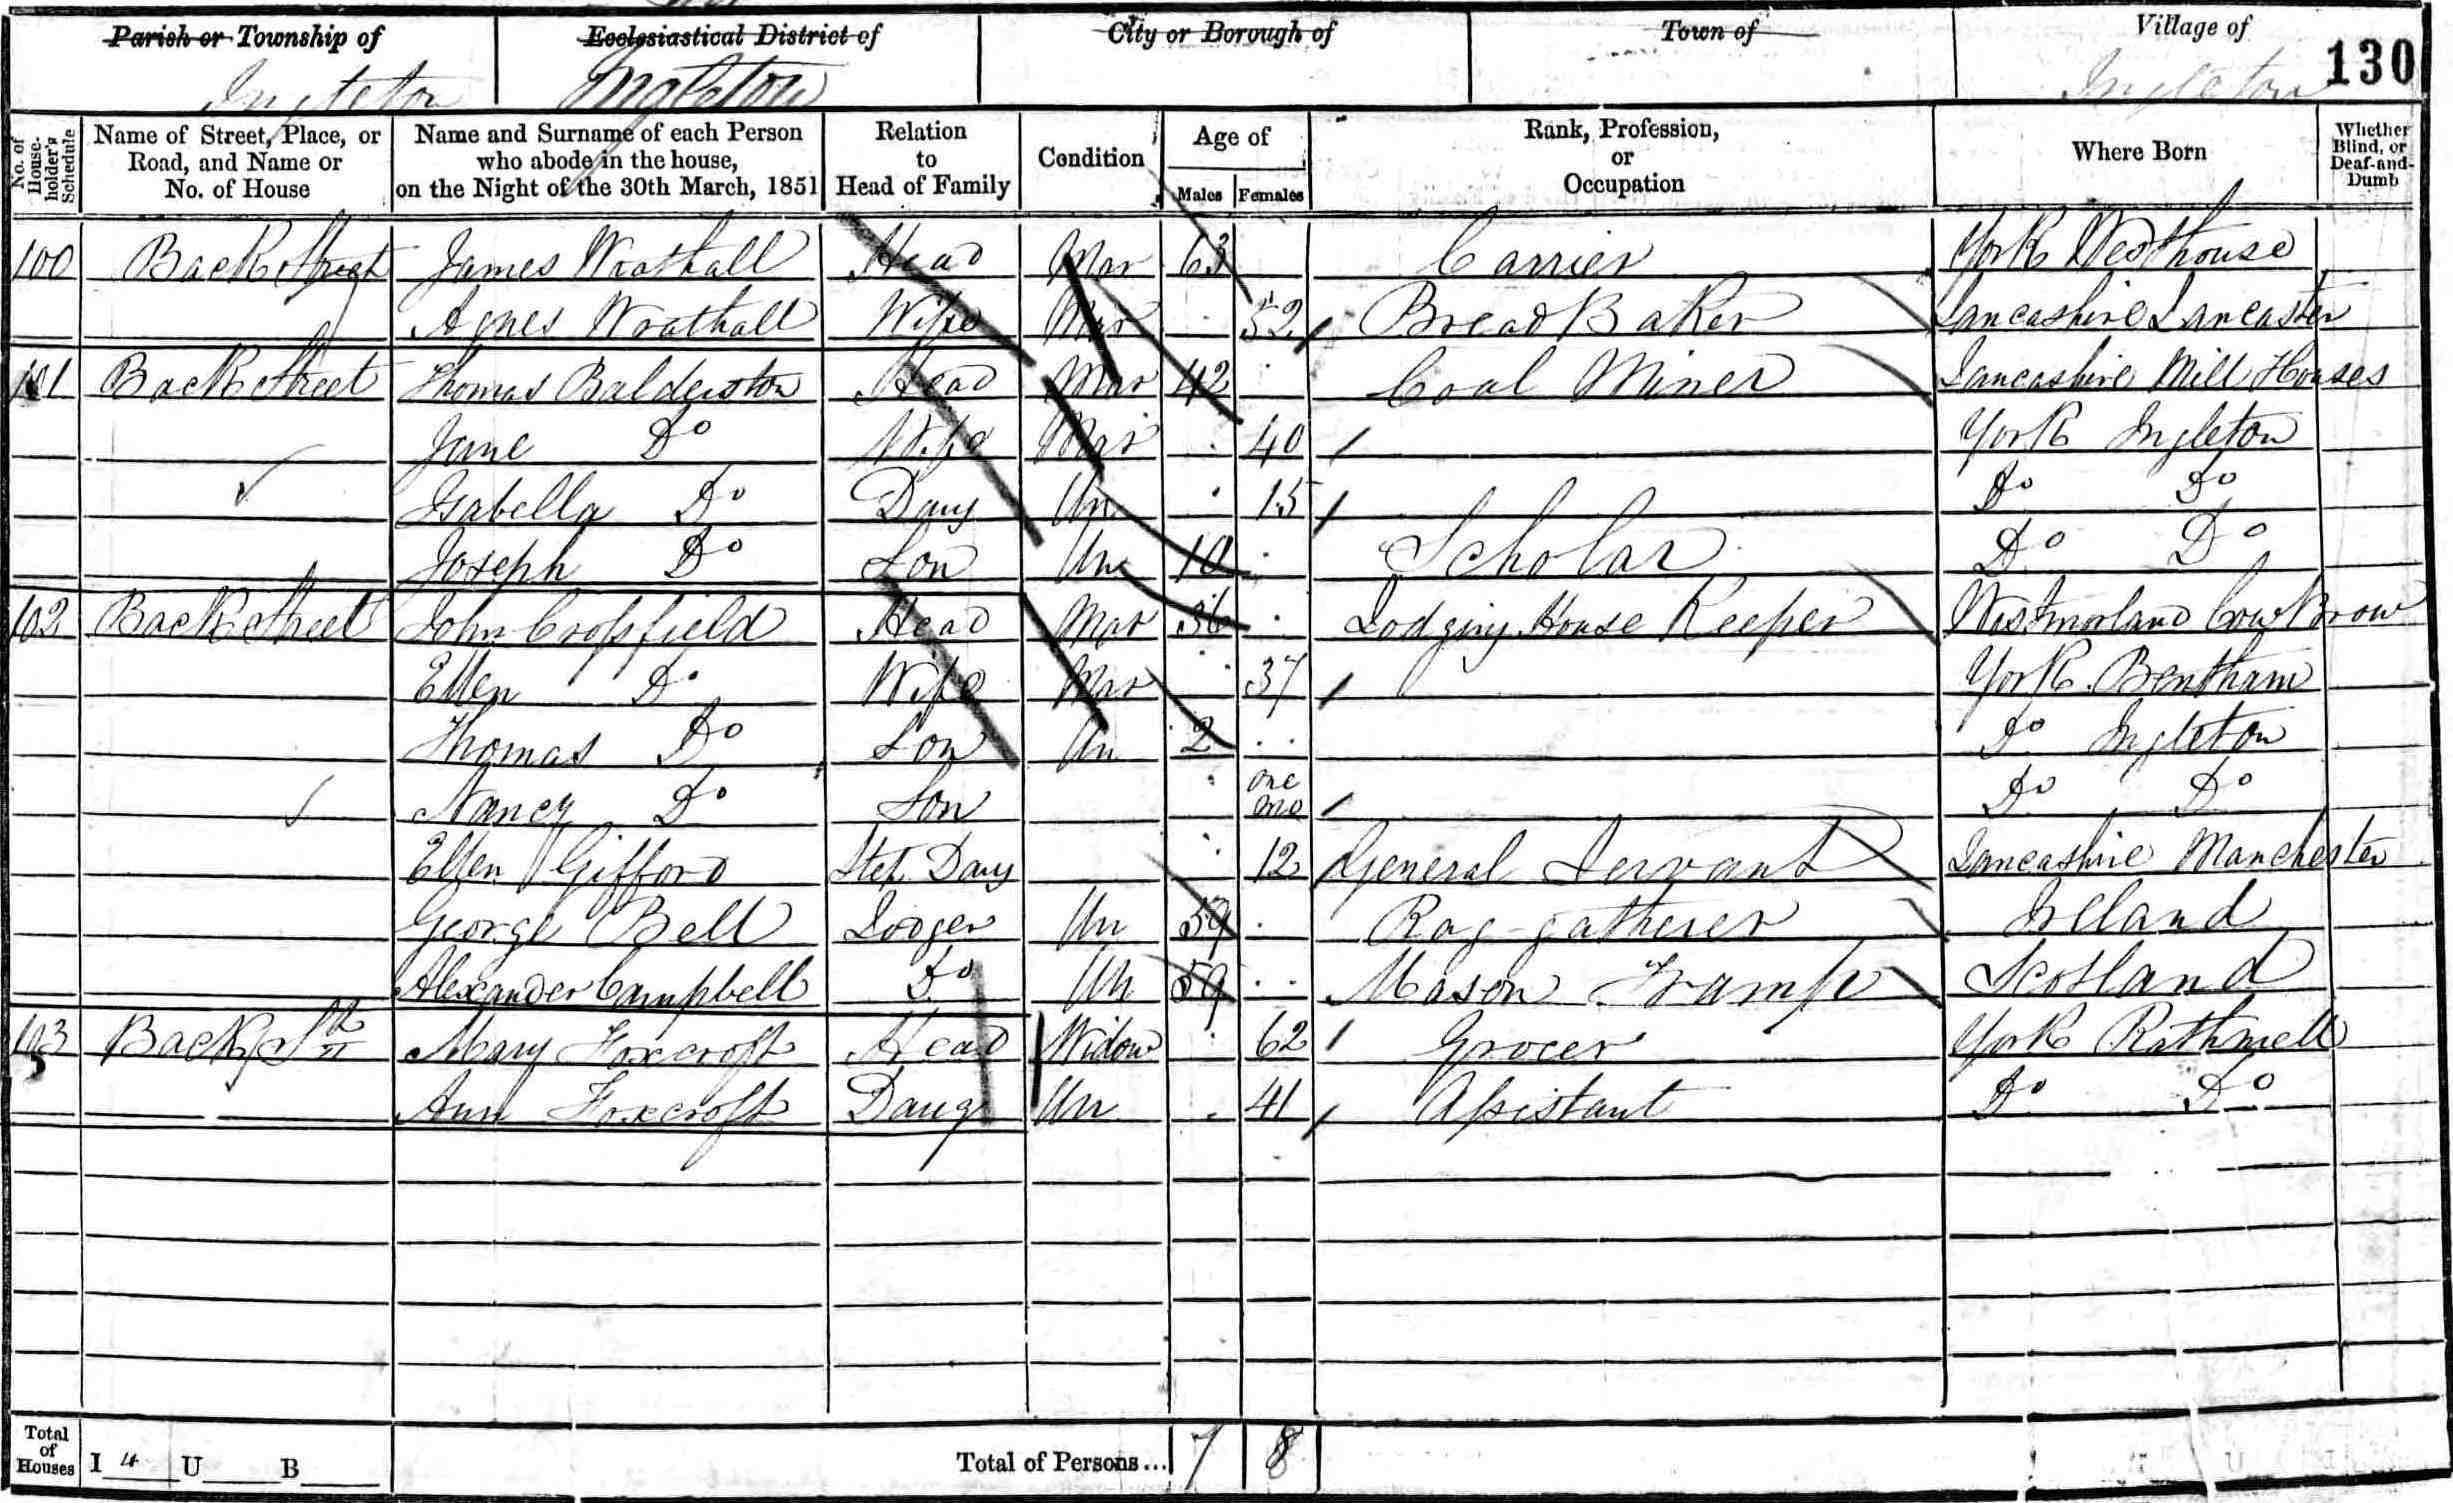 Parish or Township of Ecclesiastical District of City or Borough of Town of Village of 130
Ingleton Ingleton Ingleton
No. of House-holder's Schedule
Name of Street, Place, or Road, and Name or No. of House
Name and Surname of each Person who abode in the house, on the Night of the 30th March, 1851
Relation to Head of Family
Condition
Age of
Males Females
Rank, Profession, or Occupation
Where Born
Whether Blind, or Deaf-and-Dumb
100 Back Street James Wrathall Head Mar 63 Carrier York Westhouse
Agnes Wrathall Wife Mar 52 Bread Baker Lancashire Lancaster
101 Back Street Thomas Balderston Head Mar 42 Coal Miner Lancashire Mill Houses
Jane Do Wife Mar 40 York Ingleton
Isabella Do Daug Un 15 Do Do
Joseph Do Son Un 10 Scholar Do Do
102 Back Street John Crossfield Head Mar 36 Lodging House Keeper Westmorland Cow Brow
Ellen Do Wife Mar 37 York Bentham
Thomas Do Son Un 2 Do Ingleton
Nancy Do Son one mo Do Do
Ellen Gifford Step Daug 12 General Servant Lancashire Manchester
George Bell Lodger Un 59 Rag-gatherer Ireland
Alexander Campbell Do Un 59 Mason Tramp Scotland
103 Back St Mary Foxcroft Head Widow 62 Grocer York Rathmell
Ann Foxcroft Daug Un 41 Assistant Do Do
Total of Houses I 4 U B Total of Persons... 7 8